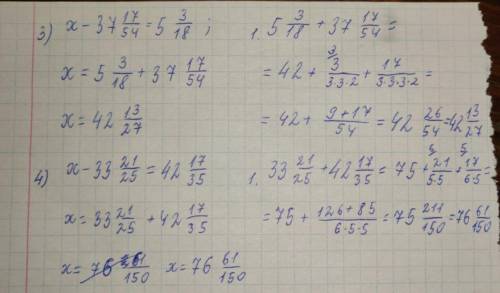 3) x - 37 17/54 = 5 3/18 ;
x = 5 3/18 + 37 17/54
x = 42 13/27
1. 5 3/18 + 37 17/54 =
= 42 + 3/(3·3·2) + 17/(3·3·3·2) =
= 42 + (9+17)/54 = 42 26/54 = 42 13/27
4) x - 33 21/25 = 42 17/35
x = 33 21/25 + 42 17/35
x = 76 61/150 x = 76 61/150
1. 33 21/25 + 42 17/35 = 75 + 21/(5·5) + 17/(6·5) =
= 75 + (126+85)/(6·5·5) = 75 211/150 = 76 61/150